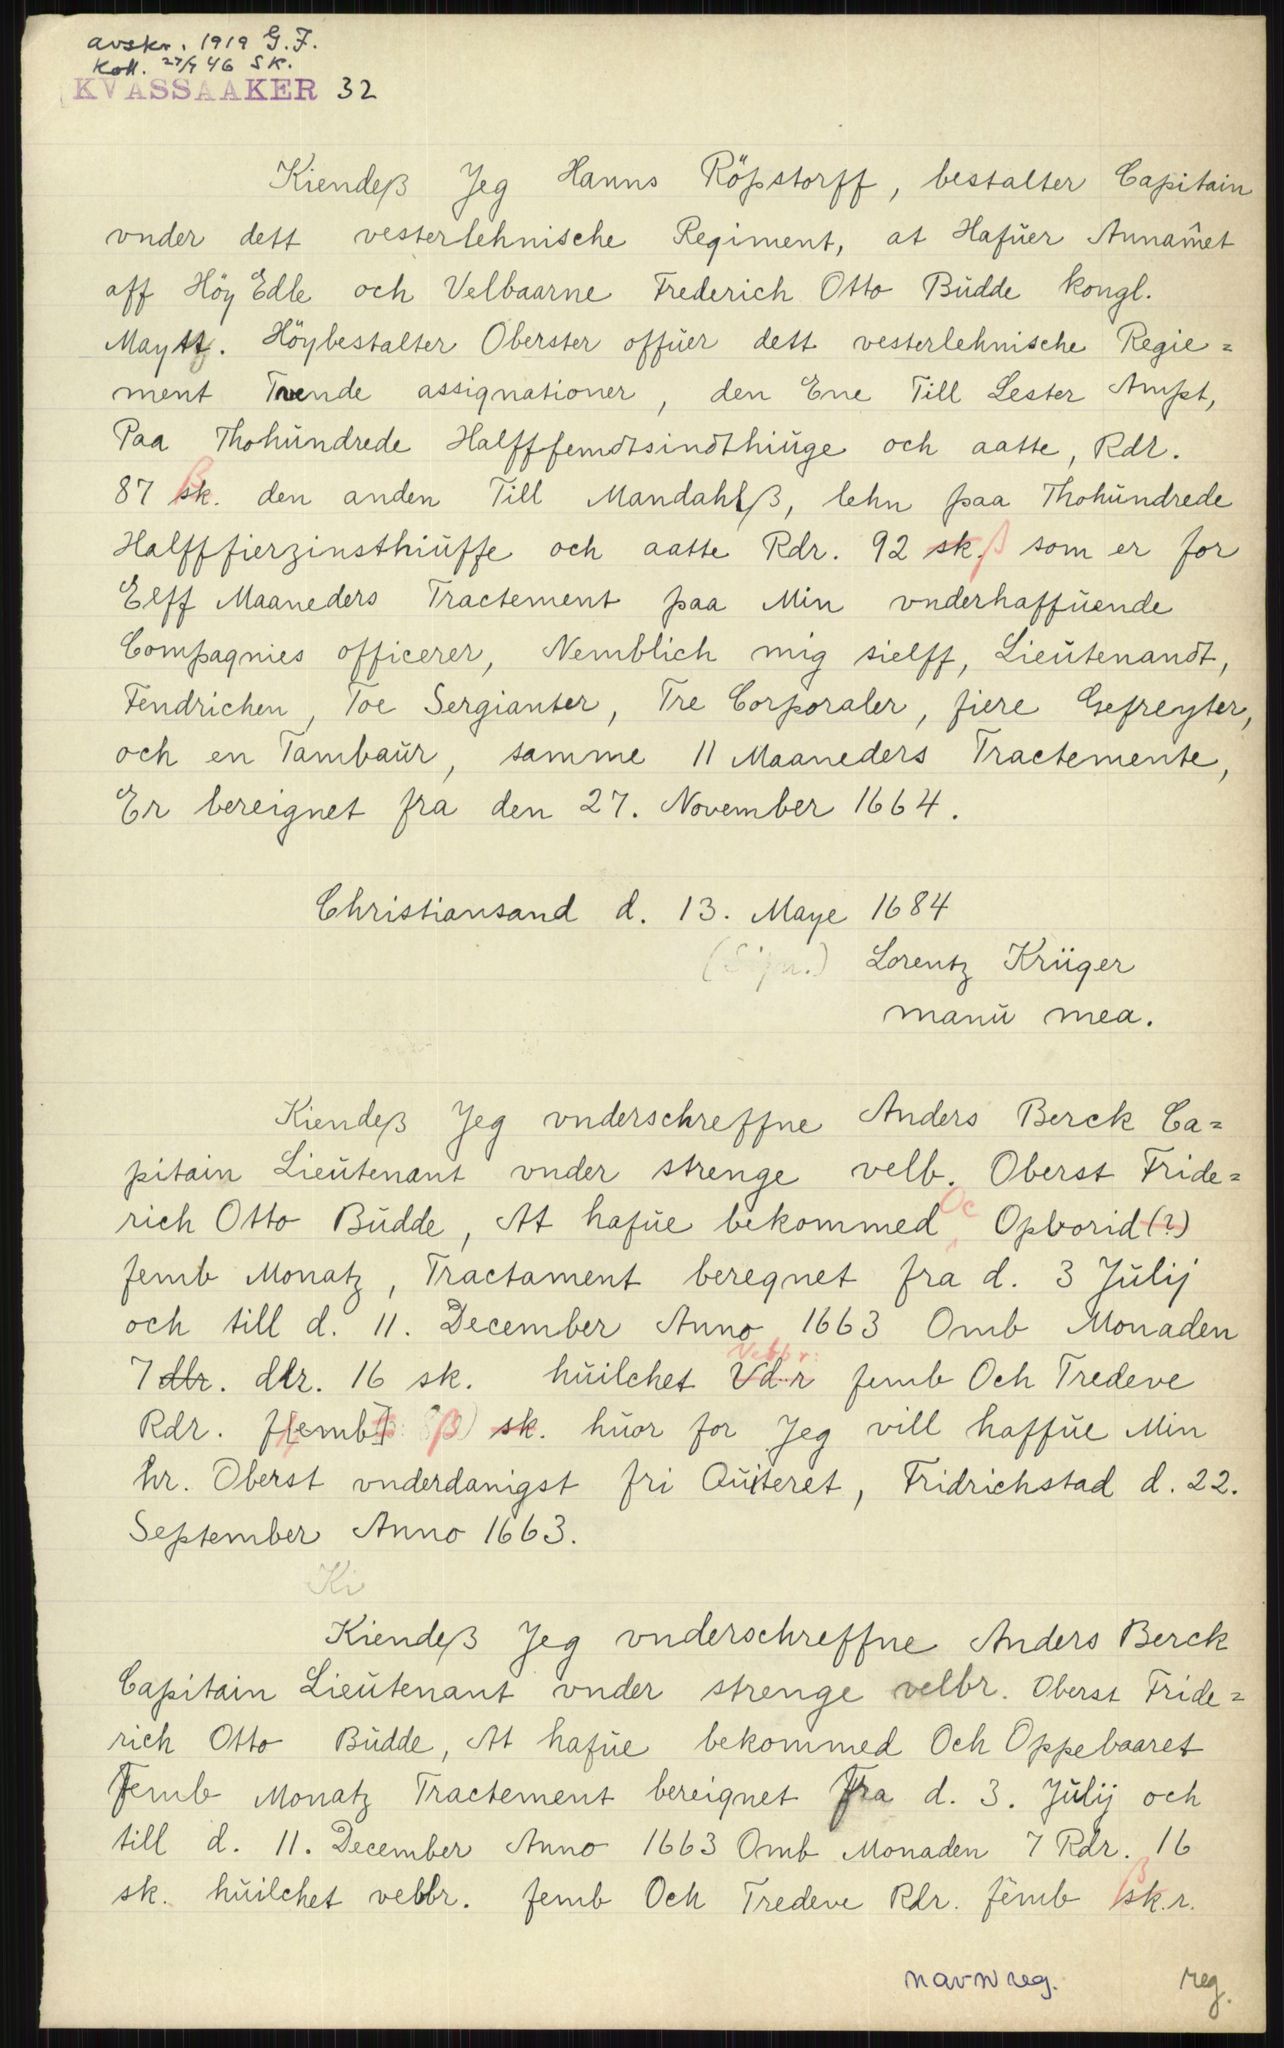 avskr. 1919 G.F.
Koll. 27/7 46 SK.
KVASSAAKER 32
Kiendeß Jeg Hanns Röpstorff, bestalter Capitain
vnder dett vesterlehnische Regiment, at Hafuer Annam̃et
aff Höy Edle och Velbaarne Frederich Otto Budde kongl.
Maytz. Höybestalter Oberster offuer dett vesterlehnische Regie=
ment Tvende assignationer, den Ene Till Lester Ampt,
Paa Thohundrede Halfffemdtsindthiuge och aatte, Rdr.
87 sk. ß den anden Till Mandahlß, lehn paa Thohundrede
Halfffierzinsthiuffe och aatte Rdr. 92 sk. ß som er for
Elff Maaneders Tractement paa Min vnderhaffuende
Compagnies officerer, Nemblich mig sielff, Lieutenandt,
Fendrichen, Toe Sergianter, Tre Corporaler, fiere Gefreyter,
och en Tambaur, samme 11 Maaneders Tractemente,
Er bereignet fra den 27. November 1664.
Christiansand d. 13. Maye 1684
(Sign.) Lorentz Krüger
manu mea.
Kiendeß Jeg vnderschreffne Anders Berck Ca=
pitain Lieutenant vnder strenge velb. Oberst Fride=
rich Otto Budde, At hafue bekommed Oc Opborid (?)
femb Monatz, Tractament beregnet fra d. 3 Julij
och till d. 11. December Anno 1663 Omb Monaden
7 dlr. dlr. 16 sk. huilchet Vd..r Vebbr: femb Och Tredeve
Rdr. femb ß sk. huor for Jeg vill haffue Min
hr. Oberst vnderdanigst fri Quiteret, Fridrichstad d. 22.
September Anno 1663.
Ki
Kiendeß Jeg vnderschreffne Anders Berck
Capitain Lieutenant vnder strenge velbr. Oberst Fride=
rich Otto Budde, At hafue bekommed Och Oppebaaret
Femb Monatz Tractement bereignet Fra d. 3. Julij och
till d. 11. December Anno 1663 Omb Monaden 7 Rdr. 16
sk. huilchet vebbr. femb Och Tredeve Rdr. femb ß sk.r.
navnreg. reg.